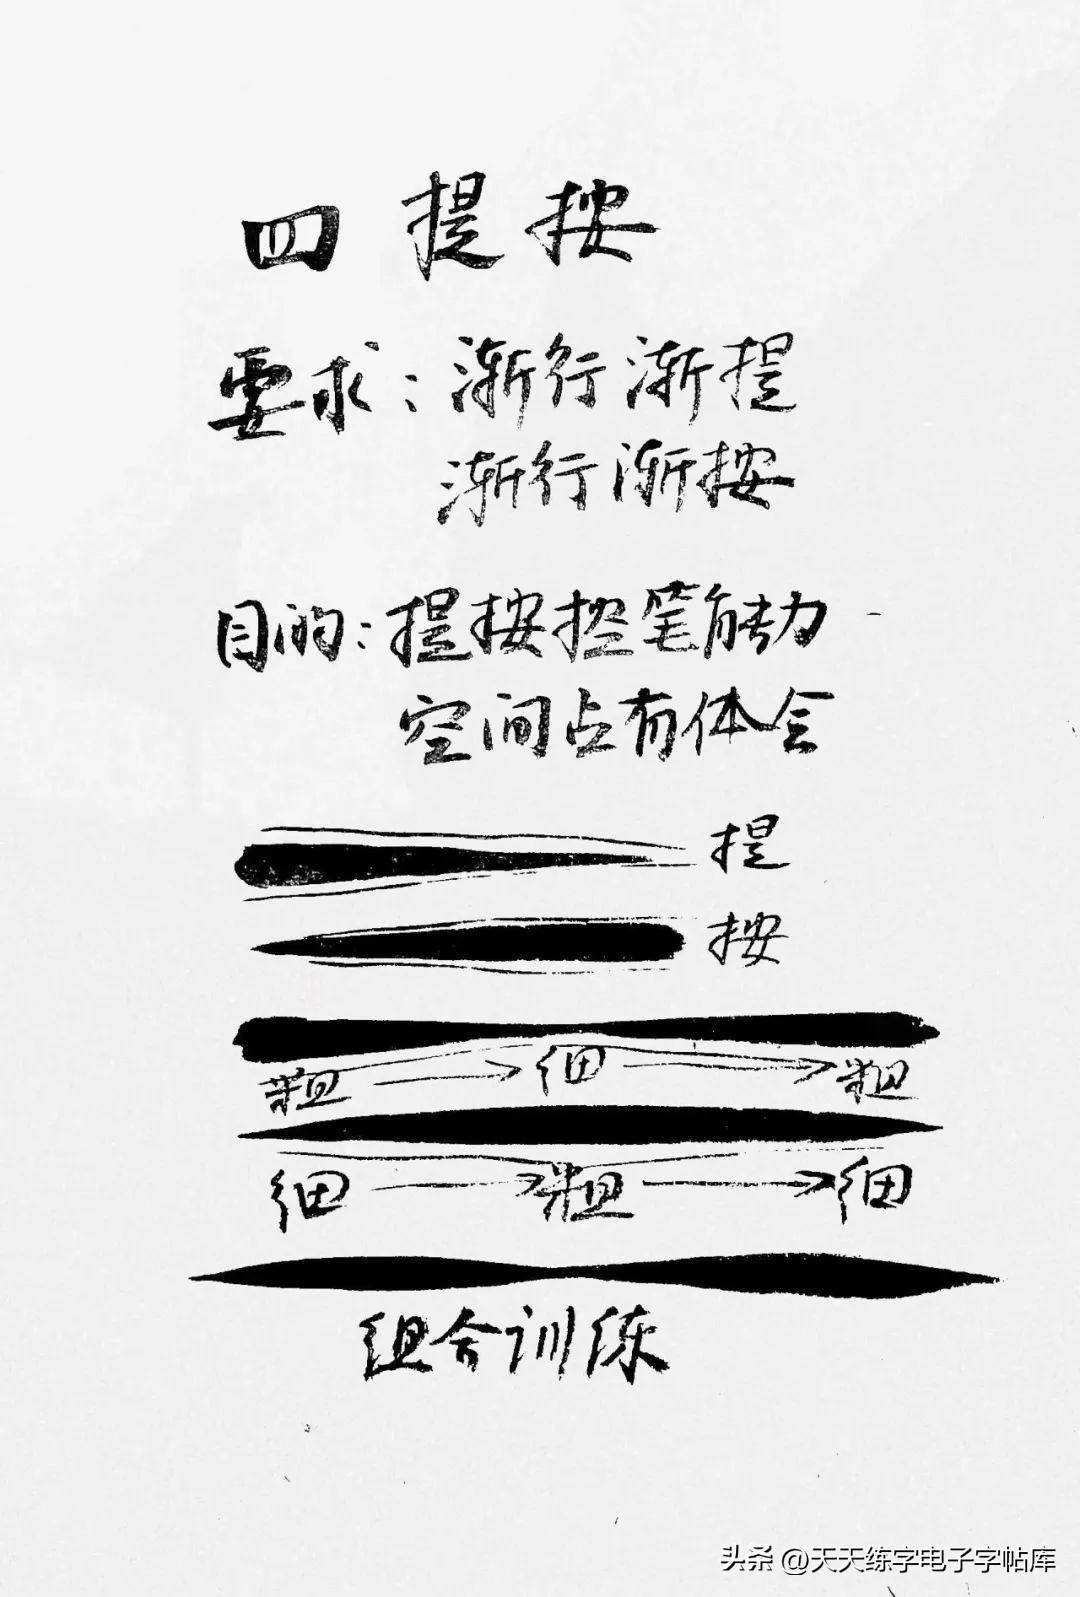 四 提按
要求：渐行渐提
渐行渐按
目的：提按控笔能力
空间占有体会
提
按
粗 细 粗
细 粗 细
组合训练
头条 @天天练字电子字帖库